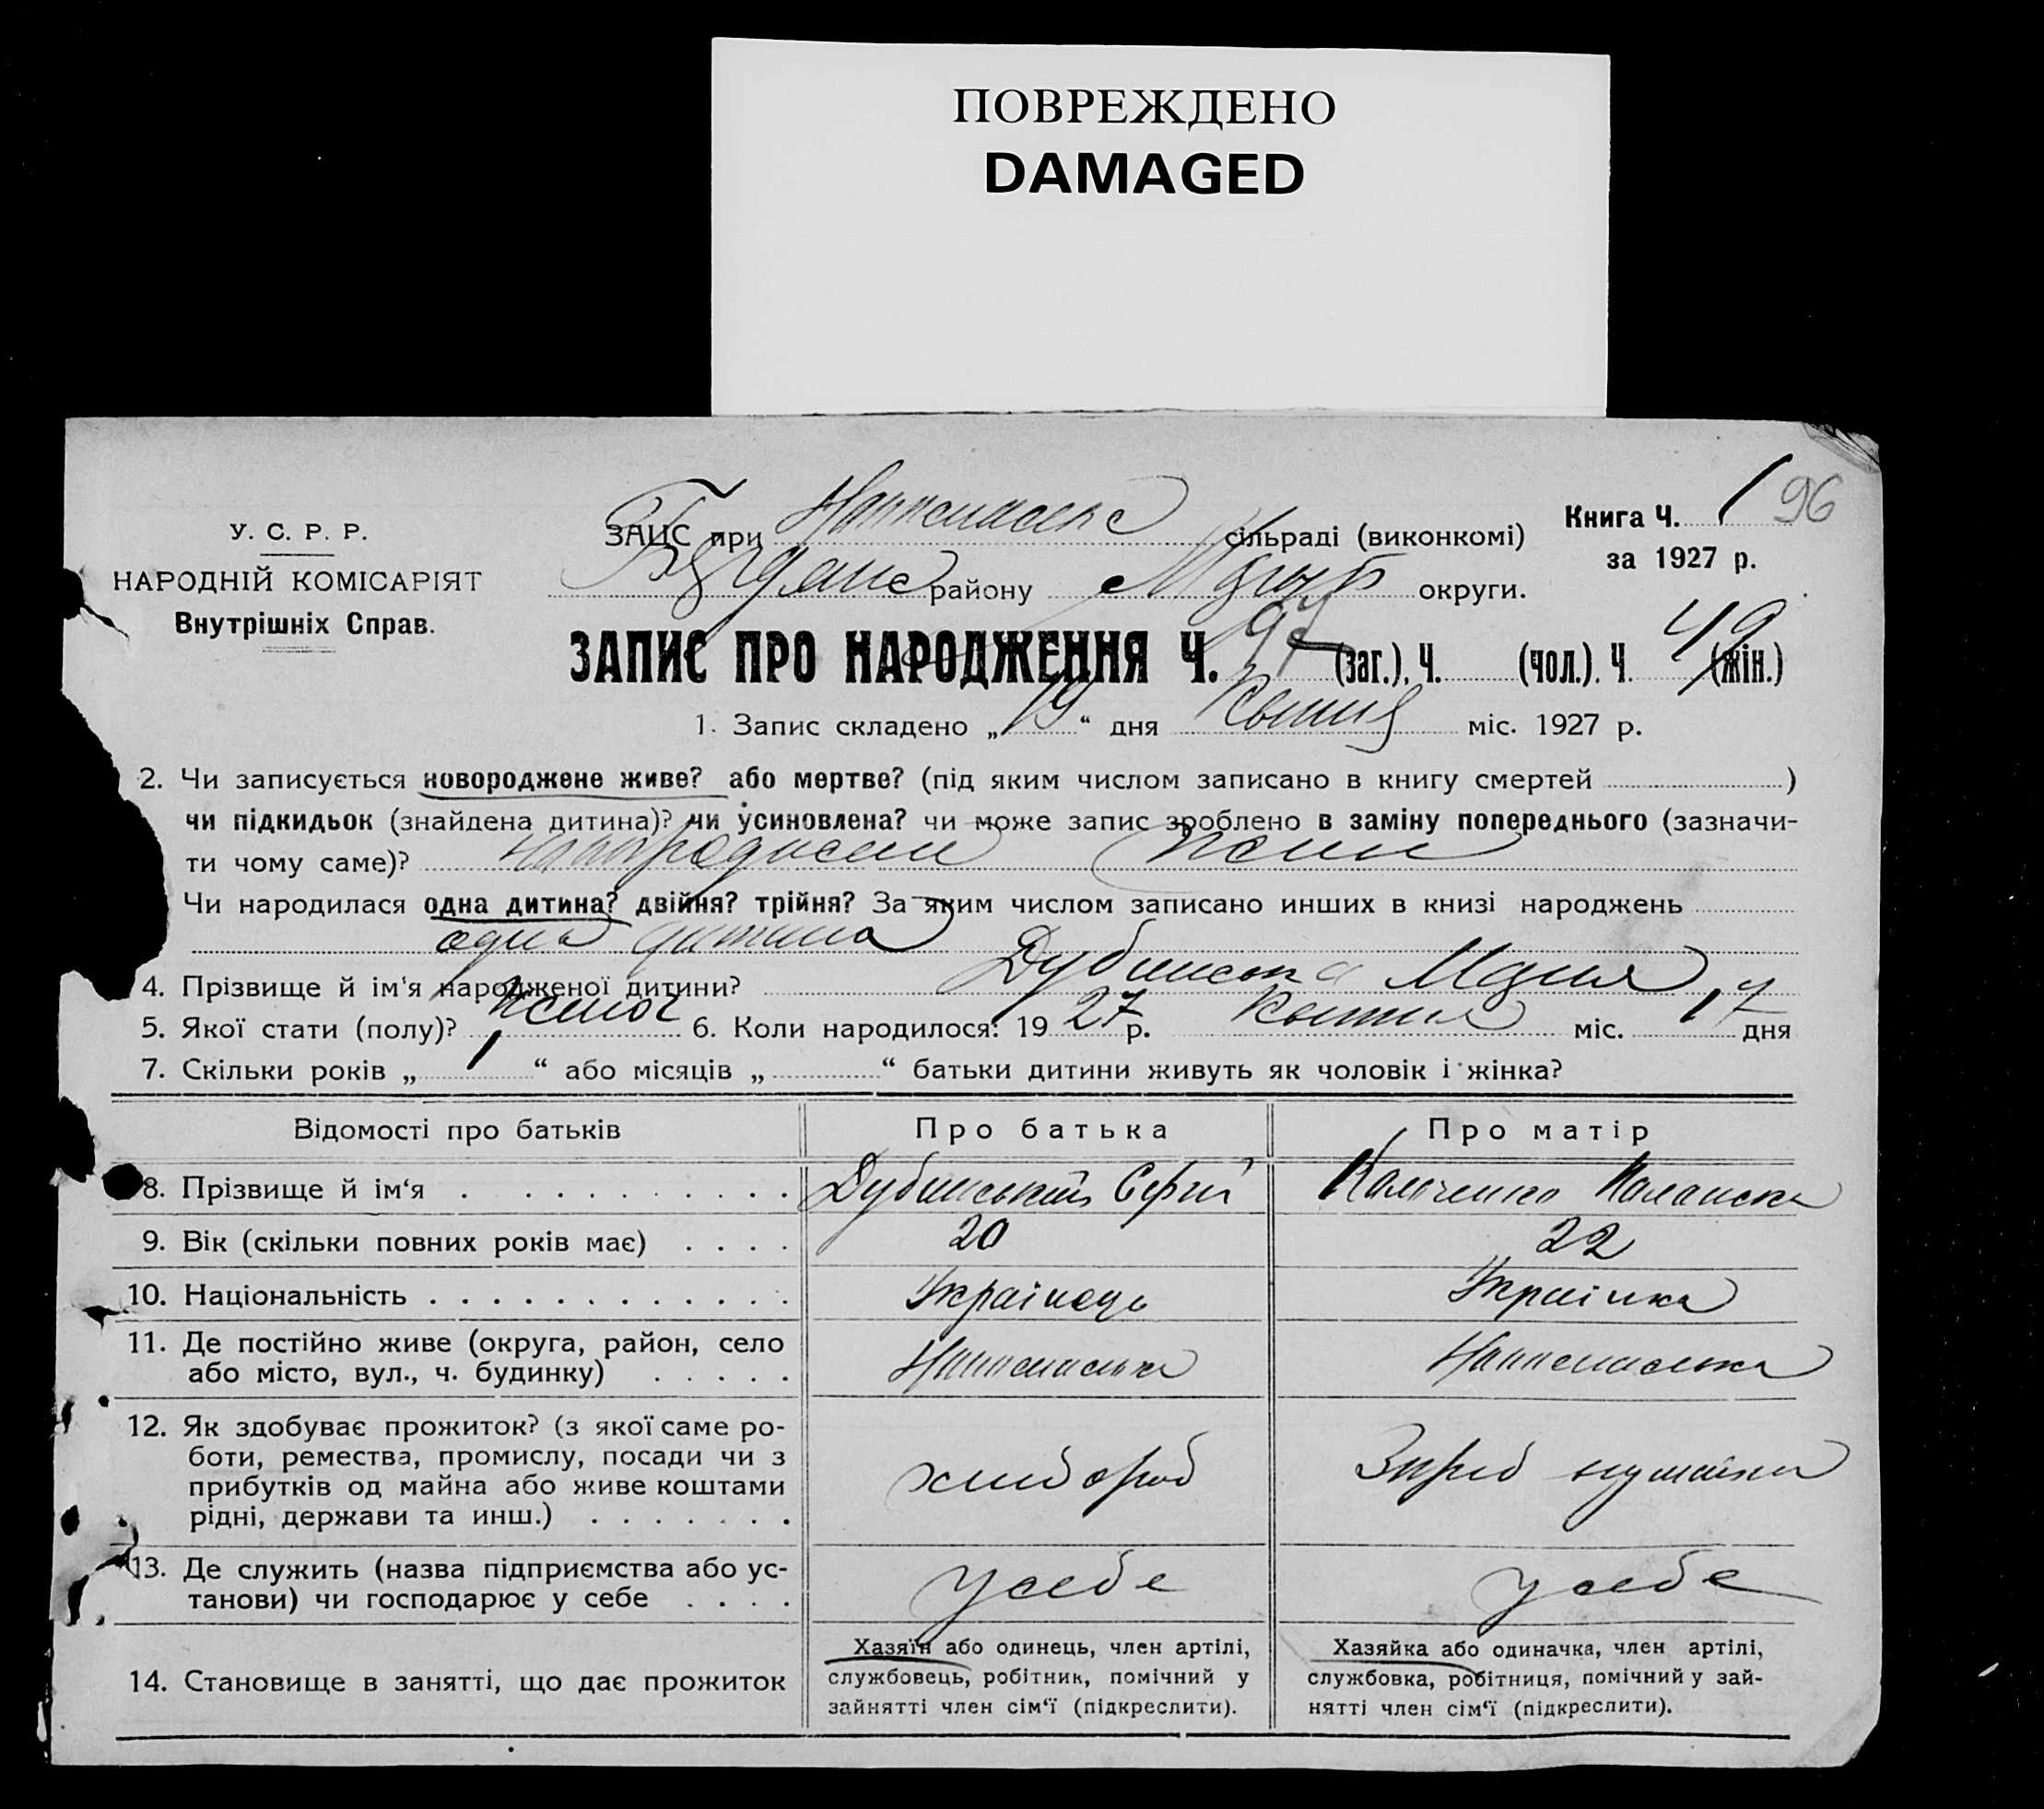 ПОВРЕЖДЕНО
DAMAGED
Книга Ч. 1 96
за 1927 р.
У. С. Р. Р.
НАРОДНІЙ КОМІСАРІЯТ
Внутрішніх Справ.
ЗАЦС при сільраді (виконкомі)
району округи.
ЗАПИС ПРО НАРОДЖЕННЯ Ч. 97 (заг.), Ч. (чол.). Ч. 49 (жін.)
1. Запис складено „ 19 “ дня Квітня міс. 1927 р.
2. Чи записується новороджене живе? або мертве? (під яким числом записано в книгу смертей )
чи підкидьок (знайдена дитина)? чи усиновлена? чи може запис зроблено в заміну попереднього (зазначи-
ти чому саме)?
Чи народилася одна дитина? двійня? трійня? За яким числом записано инших в книзі народжень
одна дитина
4. Прізвище й ім‘я народженої дитини? Дубинська Марія
5. Якої стати (полу)? жіноч 6. Коли народилося: 19 27 р. Квітня міс. 17 дня
7. Скільки років „ 1 “ або місяців „ “ батьки дитини живуть як чоловік і жінка?
Відомості про батьків Про батька Про матір
8. Прізвище й ім‘я Дубинський Сергій
9. Вік (скільки повних років має) 20 22
10. Національність Українець Українка
11. Де постійно живе (округа, район, село
або місто, вул., ч. будинку)
12. Як здобуває прожиток? (з якої саме ро-
боти, ремества, промислу, посади чи з
прибутків од майна або живе коштами
рідні, держави та инш.) хлібороб
13. Де служить (назва підприємства або ус-
танови) чи господарює у себе у себе у себе
14. Становище в занятті, що дає прожиток
Хазяїн або одинець, член артілі,
службовець, робітник, помічний у
зайнятті член сім‘ї (підкреслити).
Хазяйка або одиначка, член артілі,
службовка, робітниця, помічний у зай-
нятті член сім‘ї (підкреслити).